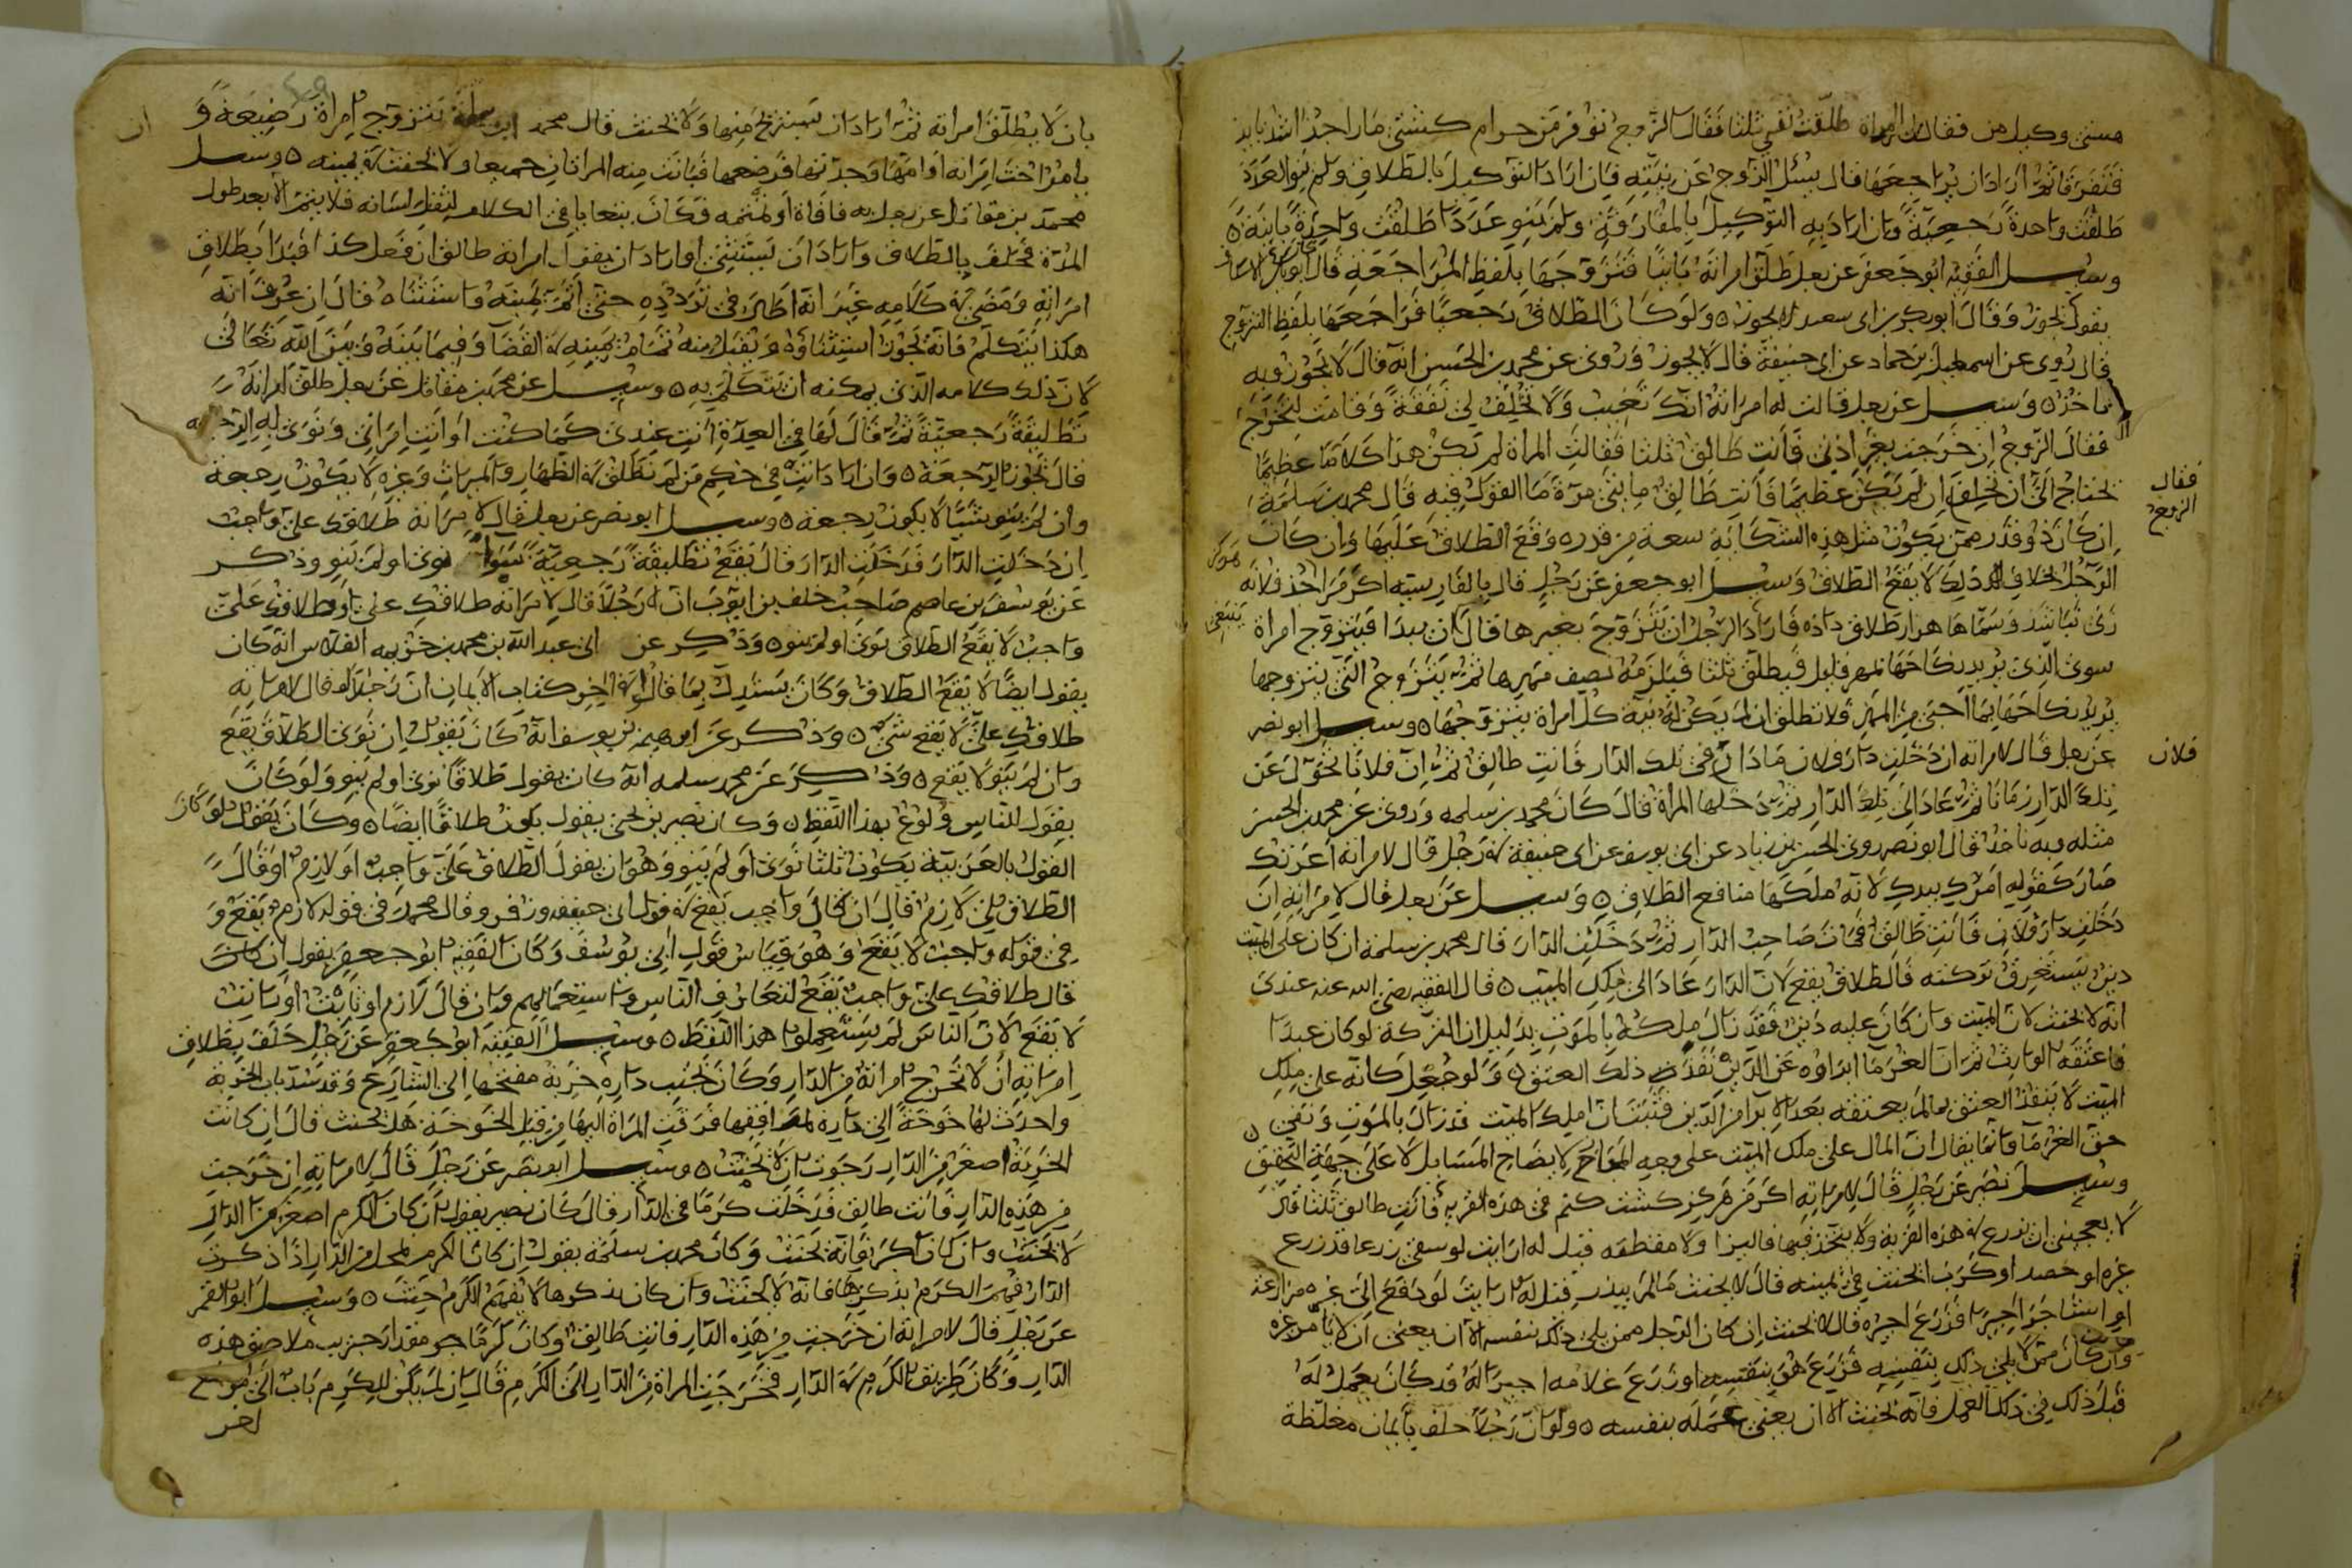 هستي وكيل من فقالت المراة طلقت نفسي ثلثا فقال الزوج
فتفرقا ثم اراد ان يراجعها قال يسئل الزوج عن نيته فان اراد التوكيل بالطلاق ولم ينو العدد
طلقت واحدة رجعية وان اراد به التوكيل بالمفارقة ولم ينو عددا طلقت واحدة باينة
وسيل الفقيه ابو جعفر عن رجل طلق امراته باينا فتزوجها بلفظ المراجعة قال ابو بكر الاسكاف
يقول يجوز وقال ابو بكر بن ابي سعيد لا يجوز ولو كان الطلاق رجعيا فراجعها بلفظ التزوج
قال روي عن اسمعيل بن حماد عن ابي حنيفة قال لا يجوز وروي عن محمد بن الحسن انه قال لا يجوز وبه
ناخذ وسيل عن رجل قالت له امراته انك تغيب ولا تخلف لي نفقة وقامت لتخرج
فقال الزوج ان خرجت بغير اذني فانت طالق ثلثا فقالت المراة لم يكن هذا كلاما عظيما
فقال الزوج
تحتاج الى ان تحلف ان لم يكن عظيما فانت طالق مايتي مرة ما القول فيه قال محمد بن سلمة
ان كان ذو قدر ممن يكون مثل هذه الشكاية سعة من قدره وقع الطلاق عليها وان كان
الرجل بخلاف ذلك لا يقع الطلاق وسيل ابو جعفر عن رجل قال بالفارسيه اكر من احد فلانه
زني شد وسماها هزار طلاق داده فاراد الرجل ان يتزوج بغيرها قال ان بدا فيتزوج امراة
سوى الذي يريد نكاحها بمهر قليل فيطلق ثلثا فيلزمه نصف مهرها ثم يتزوج التي يتزوجها
يريد نكاحها بما احب من المهر فلا تطلق ان لم يكن له نية كل امراة يتزوجها وسيل ابو نصر
عن رجل قال لامراته ان دخلت دار فلان ما دام في تلك الدار فانت طالق ثم ان فلانا تحول عن
فلان
تلك الدار زمانا ثم عاد الى تلك الدار ثم دخلها المراة قال كان محمد بن سلمه وروي عن محمد بن الحسن
مثله وبه ناخذ قال ابو نصر روى الحسن بن زياد عن ابي يوسف عن ابي حنيفة في رجل قال لامراته اعرتك
صار كقوله امرك بيدك لانه ملكها منافع الطلاق وسيل عن رجل قال لامراته ان
دخلت دار فلان فانت طالق فمات صاحب الدار ثم دخلت الدار قال محمد بن سلمة ان كان على الميت
دين يستغرق تركته فالطلاق يقع لان الدار عاد الى ملك الميت قال الفقيه رضي الله عنه عندي
انه لا يحنث لان الميت وان كان عليه دين فقد زال ملكه بالموت بدليل ان التركة لو كان عبدا
فاعتقه الوارث ثم ان الغرما ابراوه عن الدين نفذ ذلك العتق ولو جعل كانه على ملك
الميت لا ينفذ العتق مالم يعتقه بعد الابرا من الدين فثبت ان ملك الميت قد زال بالموت وبقي
حق الغرما وانما يقال ان المال على ملك الميت على وجه المجاز لايضاح المسايل لا على جهة التحقيق
وسيل نصر عن رجل قال لامراته اكر من هركز كشت كنم في هذه القرية فانت طالق ثلثا قال
لا يعجبني ان يزرع في هذه القرية ولا يتخذ فيها فاليزا ولا مقطعه قيل له ارايت لو سقي زرعا قد زرع
غيره او حصد او كرب الحنث في يمينه قال لا يحنث مالم يبذر قيل له ارايت لو دفع الى غيره مزارعة
او استاجر اجيرا فزرع اجيره قال لا يحنث ان كان الرجل ممن يلي ذلك بنفسه الا ان يعني ان لا يامر غيره
وان كان ممن لا يلي ذلك بنفسه فزرع هو بنفسه او زرع غلامه اجيرا له قد كان يعمل له
قبل ذلك في ذلك العمل فانه يحنث الا ان يعني عمله بنفسه ولو ان رجلا حلف بايمان مغلظة
بان لا يطلق امراته ثم اراد ان يستريح منها ولا يحنث قال محمد ابن سلمة يتزوج امراة رضيعة و
يامر اخت امراته او امها او جدتها فترضعها فبانت منه المراتان جميعا ولا يحنث في يمينه وسيل
محمد بن مقاتل عن رجل به فافاة او تمتمه فكان يتعايا في الكلام لثقل لسانه فلا يتم الا بعد طول
المدة فحلف بالطلاق واراد ان يستثني او اراد ان يقول امراته طالق ان فعل كذا فبدا بطلاق
امراته ومضى في كلامه غير انه اطال في تردده حتى اتم يمينه واستثناه قال ان عرف انه
هكذا يتكلم فانه يجوز استثناوه ويقبل منه تمام يمينه في القضا وفيما بينه وبين الله تعالى
لان ذلك كلامه الذي يمكنه ان يتكلم به وسيل عن محمد بن مقاتل عن رجل طلق امراته
تطليقة رجعية ثم قال لها في العدة انت عندي كما كنت او انت امراتي ونوى به الرجعة
قال يجوز الرجعة وان اراد انت في حكم من لم تطلق في الظهار والميراث وغيره لا يكون رجعة
وان لم ينو شيئا لا يكون رجعة وسيل ابو نصر عن رجل قال لامراته طلاقك علي واجب
ان دخلت الدار فدخلت الدار قال يقع تطليقة رجعية سوا نوى او لم ينو وذكر
عن يوسف بن عاصم صاحب خلف بن ايوب ان رجلا قال لامراته طلاقك علي او طلاقك علي
واجب لا يقع الطلاق نوى او لم ينو وذكر عن ابي عبد الله بن محمد بن خزيمه القلاس انه كان
يقول ايضا لا يقع الطلاق وكان يستدل بما قال في اخر كتاب الايمان ان رجلا لو قال لامراته
طلاقك علي لا يقع شئ وذكر عن ابرهيم بن يوسف انه كان يقول ان نوى الطلاق يقع
وان لم ينو لا يقع وذكر عن محمد سلمه انه كان يقول طلاقا نوى او لم ينو ولو كان
يقول للناس ولوع بهذا اللفظ وكان نصير بن يحيى يقول يكون طلاقا ايضا وكان يقول لو كان
القول بالعربية يكون ثلثا نوى او لم ينو وهو ان يقول الطلاق علي واجب او لازم او قال
الطلاق علي لازم قال ان قال واجب يقع في قول ابي حنيفه وزفر وقال محمد في قوله لازم يقع و
في قوله واجب لا يقع وهو قياس قول ابي يوسف وكان الفقيه ابو جعفر يقول ان كان
قال طلاقك علي واجب يقع لتعارف الناس واستعمالهم وان قال لازم او ثابت
لا يقع لان الناس لم يستعملوا هذا اللفظ وسيل الفقيه ابو جعفر عن رجل حلف بطلاق
امراته ان لا تخرج امراته من الدار وكان بجنب داره خربة مفتحها الى الشارع وقد سد باب الخربة
واحدث لها خوخة الى داره لمرافقها فرقت المراة اليها من قبل الخوخة هل يحنث قال ان كانت
الخربة اصغر من الدار رجوت ان لا يحنث وسيل ابو نصر عن رجل قال لامراته ان خرجت
من هذه الدار فانت طالق فدخلت كرما في الدار قال كان نصير يقول ان كان الكرم اصغر من الدار
لا يحنث وان كان اكبر فانه يحنث وكان محمد بن سلمة يقول ان كان الكرم من الدار اذا ذكرت
الدار فهم الكرم بذكرها فانه لا يحنث وان كان بذكرها لا يفهم الكرم حنث وسيل ابو القسم
عن رجل قال لامراته ان خرجت من هذه الدار فانت طالق وكان كرما جو مقدار جريب ملاصق هذه
الدار وكان طريق الكرم في الدار فخرجت المراة من الدار الى الكرم قال ان لم يكن للكرم باب الى موضع
اخر